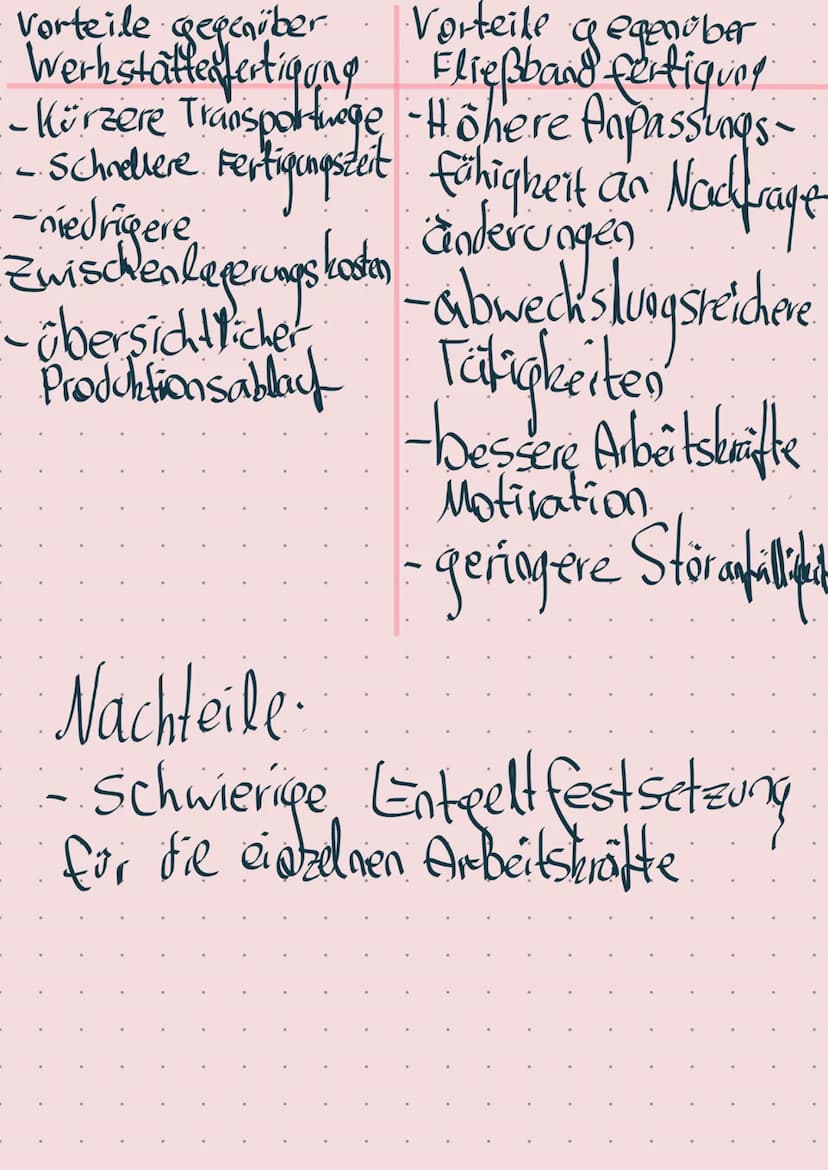 Vorteile gegenüber
Werkstättenfertigung
- Kürzere Transportwege
- Schnellere Fertigungszeit
- niedrigere
Zwischenlagerungskosten
- übersichtlicher
Produktionsablauf
Vorteile gegenüber
Fließbandfertigung
- Höhere Anpassungs-
fähigkeit an Nachfrage-
änderungen
- abwechslungsreichere
Tätigkeiten
- bessere Arbeitskräfte
Motivation
- geringere Störanfälligkeit
Nachteile:
- Schwierige Entgeltfestsetzung
für die einzelnen Arbeitskräfte